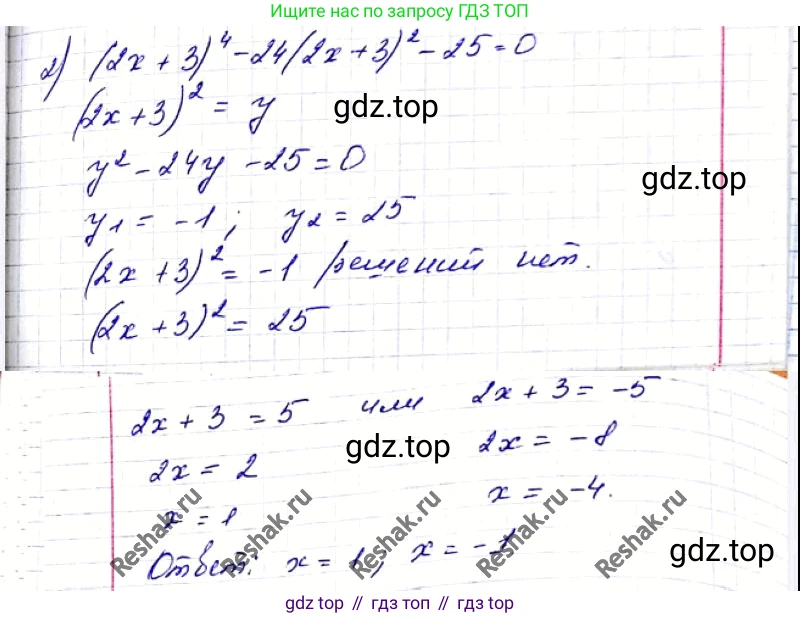 Ищите нас по запросу ГДЗ ТОП
2) (2x + 3)⁴ - 24(2x + 3)² - 25 = 0
(2x + 3)² = y
gdz.top
y² - 24y - 25 = 0
gdz.top
y₁ = -1; y₂ = 25
(2x + 3)² = -1 решений нет.
(2x + 3)² = 25
2x + 3 = 5 или 2x + 3 = -5
gdz.top
2x = 2 2x = -8
x = 1 x = -4.
Reshak.ru Reshak.ru Reshak.ru Reshak.ru Reshak.ru
Ответ: x = 1, x = -
gdz.top
gdz top // гдз топ // gdz top